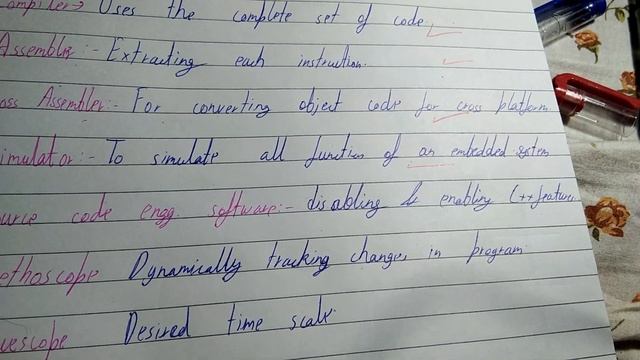 ompiler → Uses the complete set of code
Assembler :- Extracting each instruction.
oss Assembler :- For converting object code for cross platform
imulator :- To simulate all function of an embedded system
urce code engg. software :- disabling & enabling C++ features
ethoscope Dynamically tracking changes in program
uescope Desired time scale